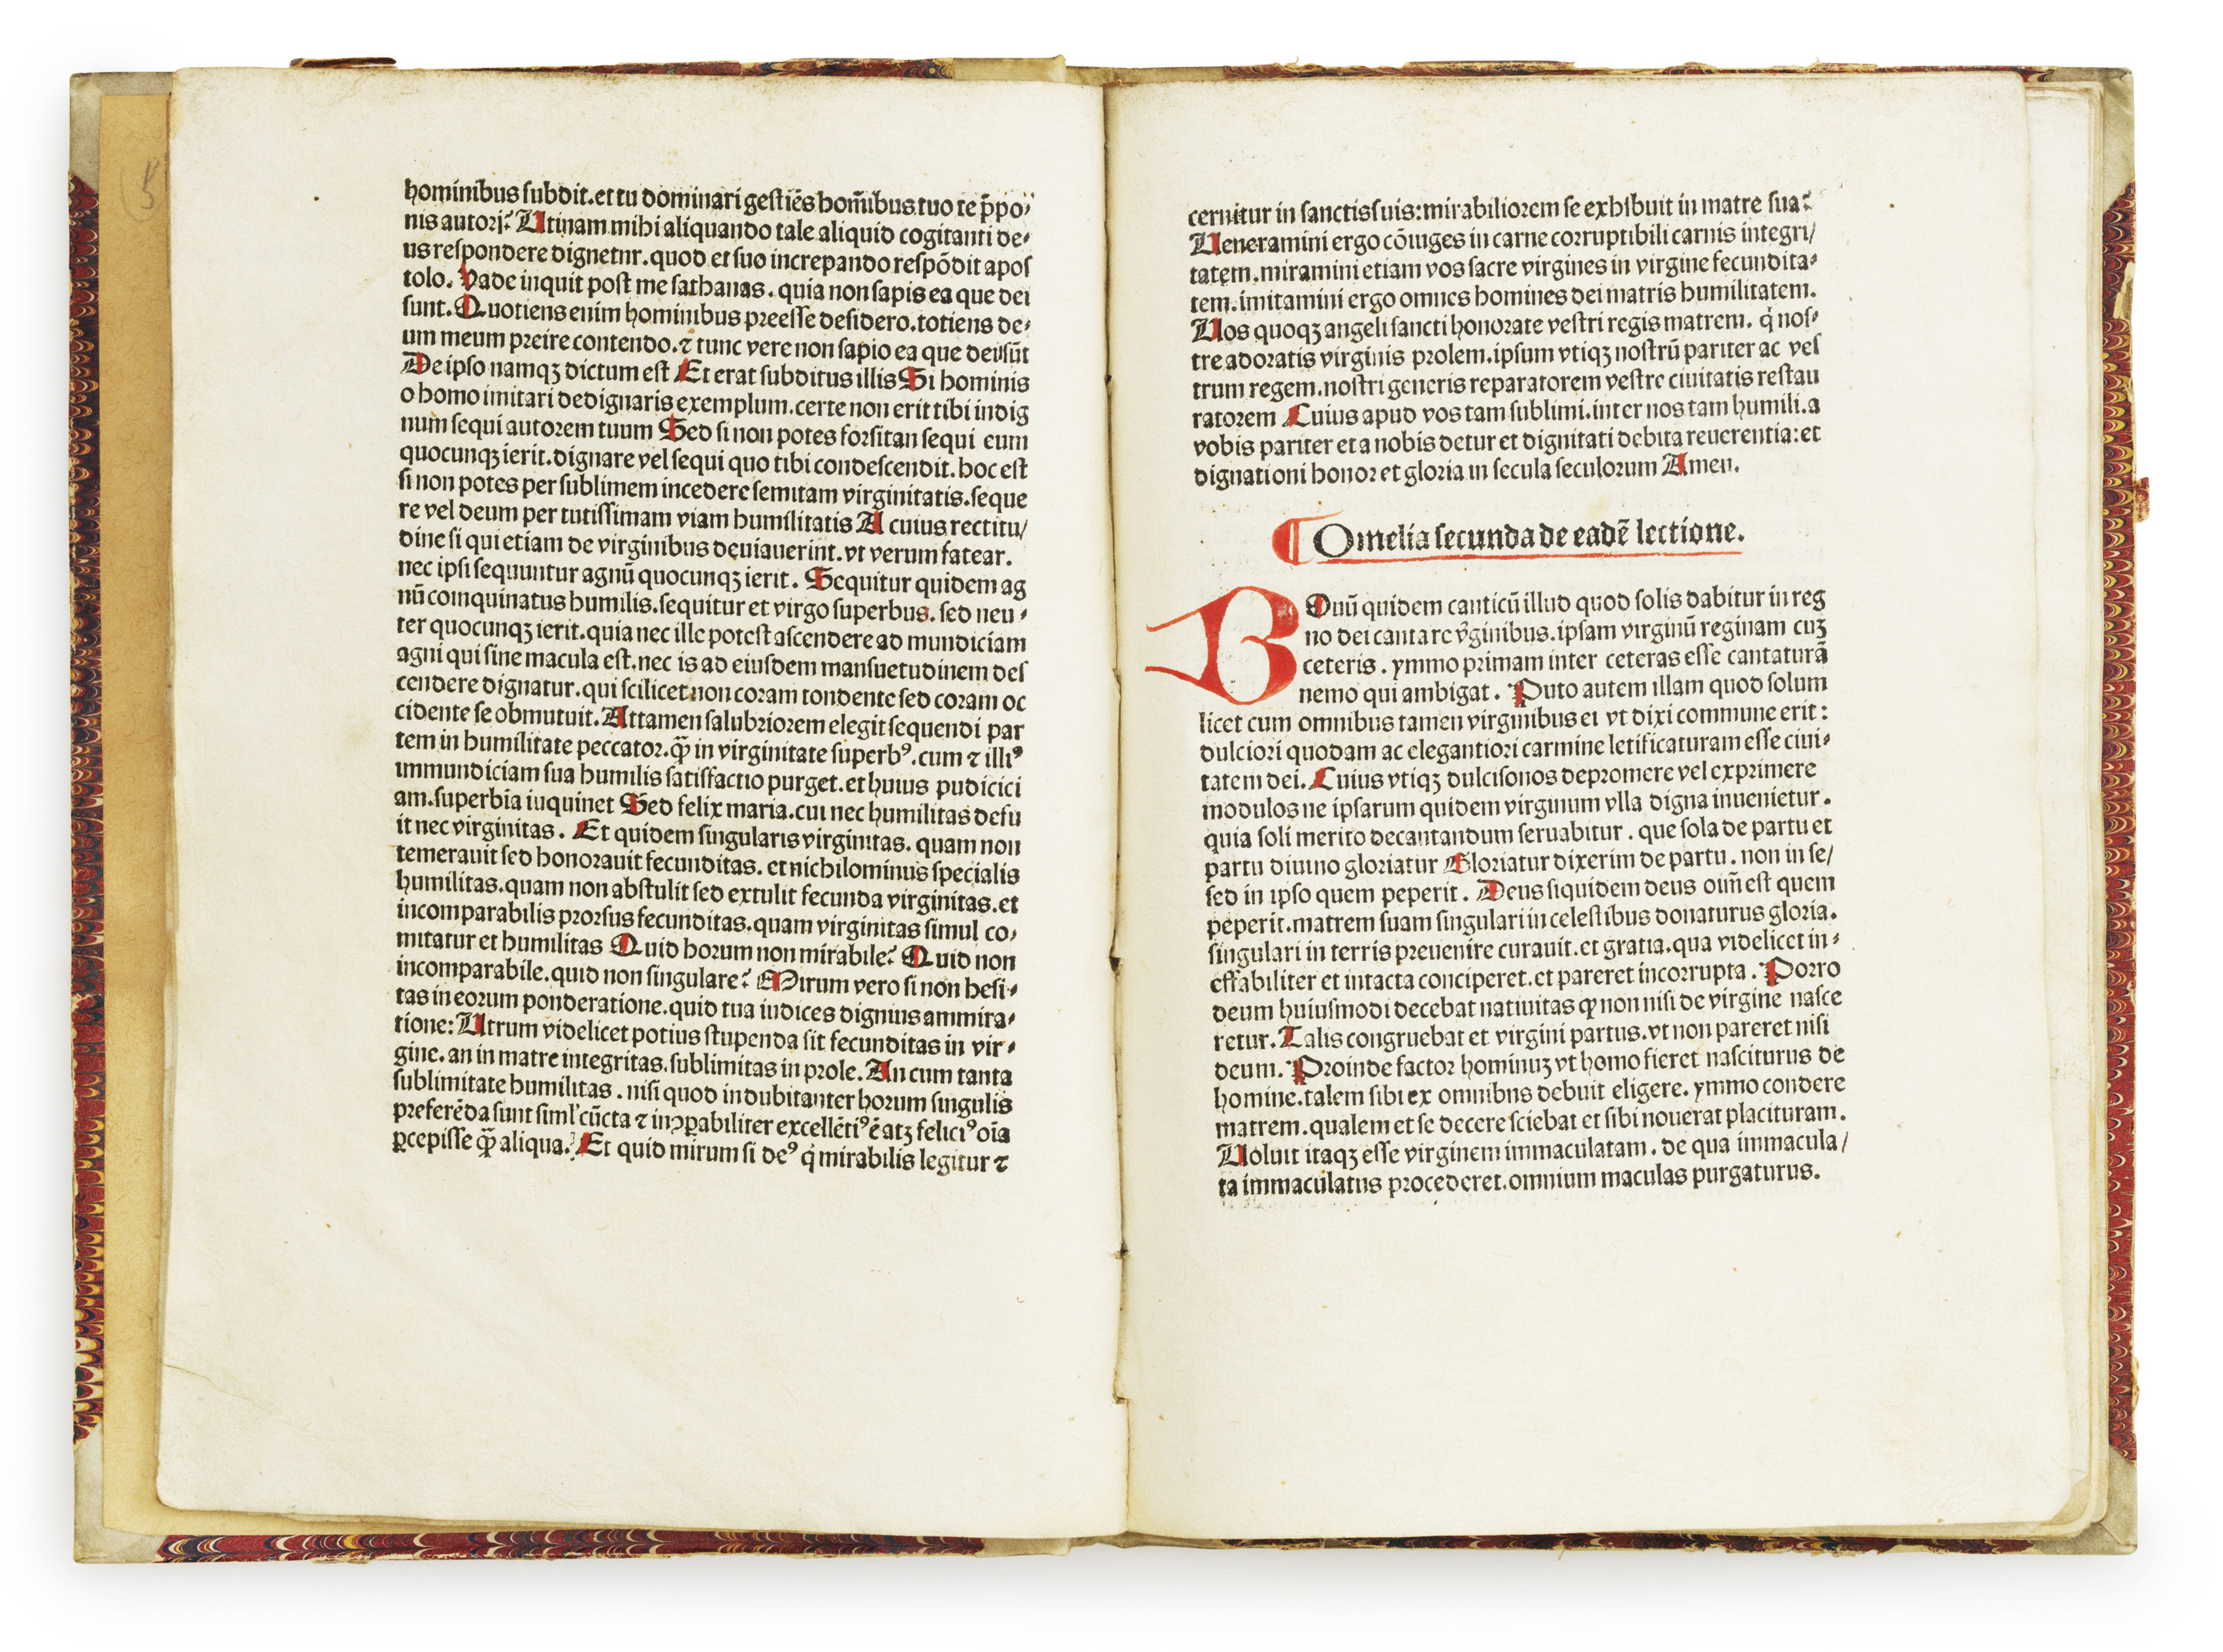 (5
hominibus subdit.et tu dominari gestiẽs hom̃ibus tuo te p̃po⸗
nis autori? Utinam mihi aliquando tale aliquid cogitanti de⸗
us respondere dignetnr.quod et suo increpando respõdit apos
tolo. Vade inquit post me sathanas. quia non sapis ea que dei
sunt. Quotiens enim hominibus preesse desidero.totiens de⸗
um meum preire contendo.⁊ tunc vere non sapio ea que dei sũt
De ipso namqꝫ dictum est Et erat subditus illis Si hominis
o homo imitari dedignaris exemplum.certe non erit tibi indig
num sequi autorem tuum Sed si non potes forsitan sequi eum
quocunqꝫ ierit.dignare vel sequi quo tibi condescendit.hoc est
si non potes per sublimem incedere semitam virginitatis.seque
re vel deum per tutissimam viam humilitatis A cuius rectitu/
dine si qui etiam de virginibus deuiauerint.vt verum fatear.
nec ipsi sequuntur agnũ quocunqꝫ ierit. Sequitur quidem ag
nũ coinquinatus humilis.sequitur et virgo superbus. sed neu⸗
ter quocunqꝫ ierit.quia nec ille potest ascendere ad mundiciam
agni qui sine macula est.nec is ad eiusdem mansuetudinem des
cendere dignatur.qui scilicet non coram tondente sed coram oc
cidente se obmutuit. Attamen salubriorem elegit sequendi par
tem in humilitate peccator.ꝙ̃ in virginitate superbꝰ.cum ⁊ illiꝰ
immundiciam sua humilis satisfactio purget.et huius pudicici
am.superbia iuquinet Sed felix maria.cui nec humilitas defu
it nec virginitas. Et quidem singularis virginitas. quam non
temerauit sed honorauit fecunditas. et nichilominus specialis
humilitas.quam non abstulit sed extulit fecunda virginitas.et
incomparabilis prorsus fecunditas.quam virginitas simul co⸗
mitatur et humilitas Quid horum non mirabile? Quid non
incomparabile.quid non singulare? Mirum vero si non hesi⸗
tas in eorum ponderatione.quid tua iudices dignius ammira⸗
tione: Utrum videlicet potius stupenda sit fecunditas in vir⸗
gine.an in matre integritas.sublimitas in prole. An cum tanta
sublimitate humilitas. nisi quod indubitanter horum singulis
preferẽda sunt siml' cũcta ⁊ inↄꝑabiliter excellẽtiꝰ ẽ atꝫ feliciꝰ oĩa
ꝑcepisse ꝙ̃ aliqua. Et quid mirum si deꝰ q̇ mirabilis legitur ⁊
cernitur in sanctis suis:mirabiliorem se exhibuit in matre sua?
Ueneramini ergo cõiuges in carne corruptibili carnis integri/
tatem.miramini etiam vos sacre virgines in virgine fecundita⸗
tem.imitamini ergo omnes homines dei matris humilitatem.
Uos quoqꝫ angeli sancti honorate vestri regis matrem. q̇ nos⸗
tre adoratis virginis prolem.ipsum vtiqꝫ nostrũ pariter ac ves
trum regem.nostri generis reparatorem vestre ciuitatis restau
ratorem Cuius apud vos tam sublimi.inter nos tam humili.a
vobis pariter et a nobis detur et dignitati debita reuerentia:et
dignationi honor et gloria in secula seculorum Amen.
¶ Omelia secunda de eadẽ lectione.
B Ouũ quidem canticũ illud quod solis dabitur in reg
no dei cantare v̾ginibus.ipsam virginũ reginam cuꝫ
ceteris. ymmo primam inter ceteras esse cantaturã
nemo qui ambigat. Puto autem illam quod solum
licet cum omnibus tamen virginibus ei vt dixi commune erit:
dulciori quodam ac elegantiori carmine letificaturam esse ciui⸗
tatem dei. Cuius vtiqꝫ dulcisonos depromere vel exprimere
modulos ne ipsarum quidem virginum vlla digna inuenietur.
quia soli merito decantandum seruabitur. que sola de partu et
partu diuino gloriatur Gloriatur dixerim de partu. non in se/
sed in ipso quem peperit. Deus siquidem deus oim̃ est quem
peperit.matrem suam singulari in celestibus donaturus gloria.
singulari in terris preuenire curauit.et gratia.qua videlicet in⸗
effabiliter et intacta conciperet.et pareret incorrupta. Porro
deum huiusmodi decebat natiuitas ꝙ non nisi de virgine nasce
retur. Talis congruebat et virgini partus.vt non pareret nisi
deum. Proinde factor hominuꝫ vt homo fieret nasciturus de
homine.talem sibi ex omnibns debuit eligere. ymmo condere
matrem.qualem et se decere sciebat et sibi nouerat placituram.
Uoluit itaqꝫ esse virginem immaculatam. de qua immacula/
ta immaculatus procederet.omnium maculas purgaturus.